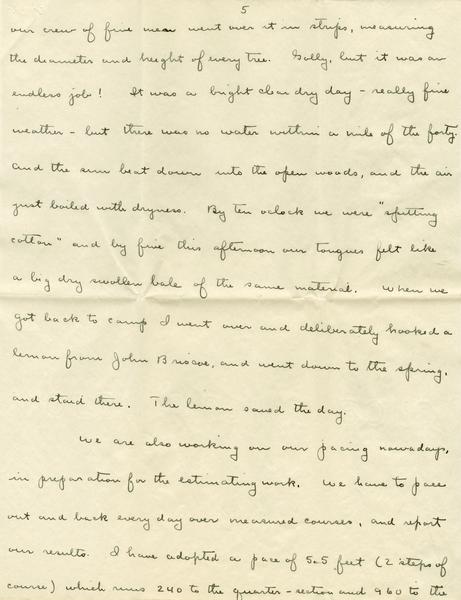 5
our crew of five men went over it in strips, measuring
the diameter and height of every tree. Golly, but it was an
endless job! It was a bright clear dry day - really fine
weather - but there was no water within a mile of the forty.
and the sun beat down into the open woods, and the air
just boiled with dryness. By ten oclock we were "spitting
cotton" and by five this afternoon our tongues felt like
a big dry swollen bale of the same material. When we
got back to camp I went over and deliberately hooked a
lemon from John Briscoe, and went down to the spring,
and staid there. The lemon saved the day.
We are also working on our pacing nowadays,
in preparation for the estimating work. We have to pace
out and back every day over measured courses, and report
our results. I have adopted a pace of 5.5 feet (2 steps of
course) which runs 240 to the quarter-section and 960 to the